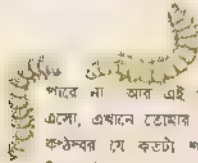 পারে না আর এই
এলো, এখানে তোমার
কণ্ঠস্বর যে কতটা